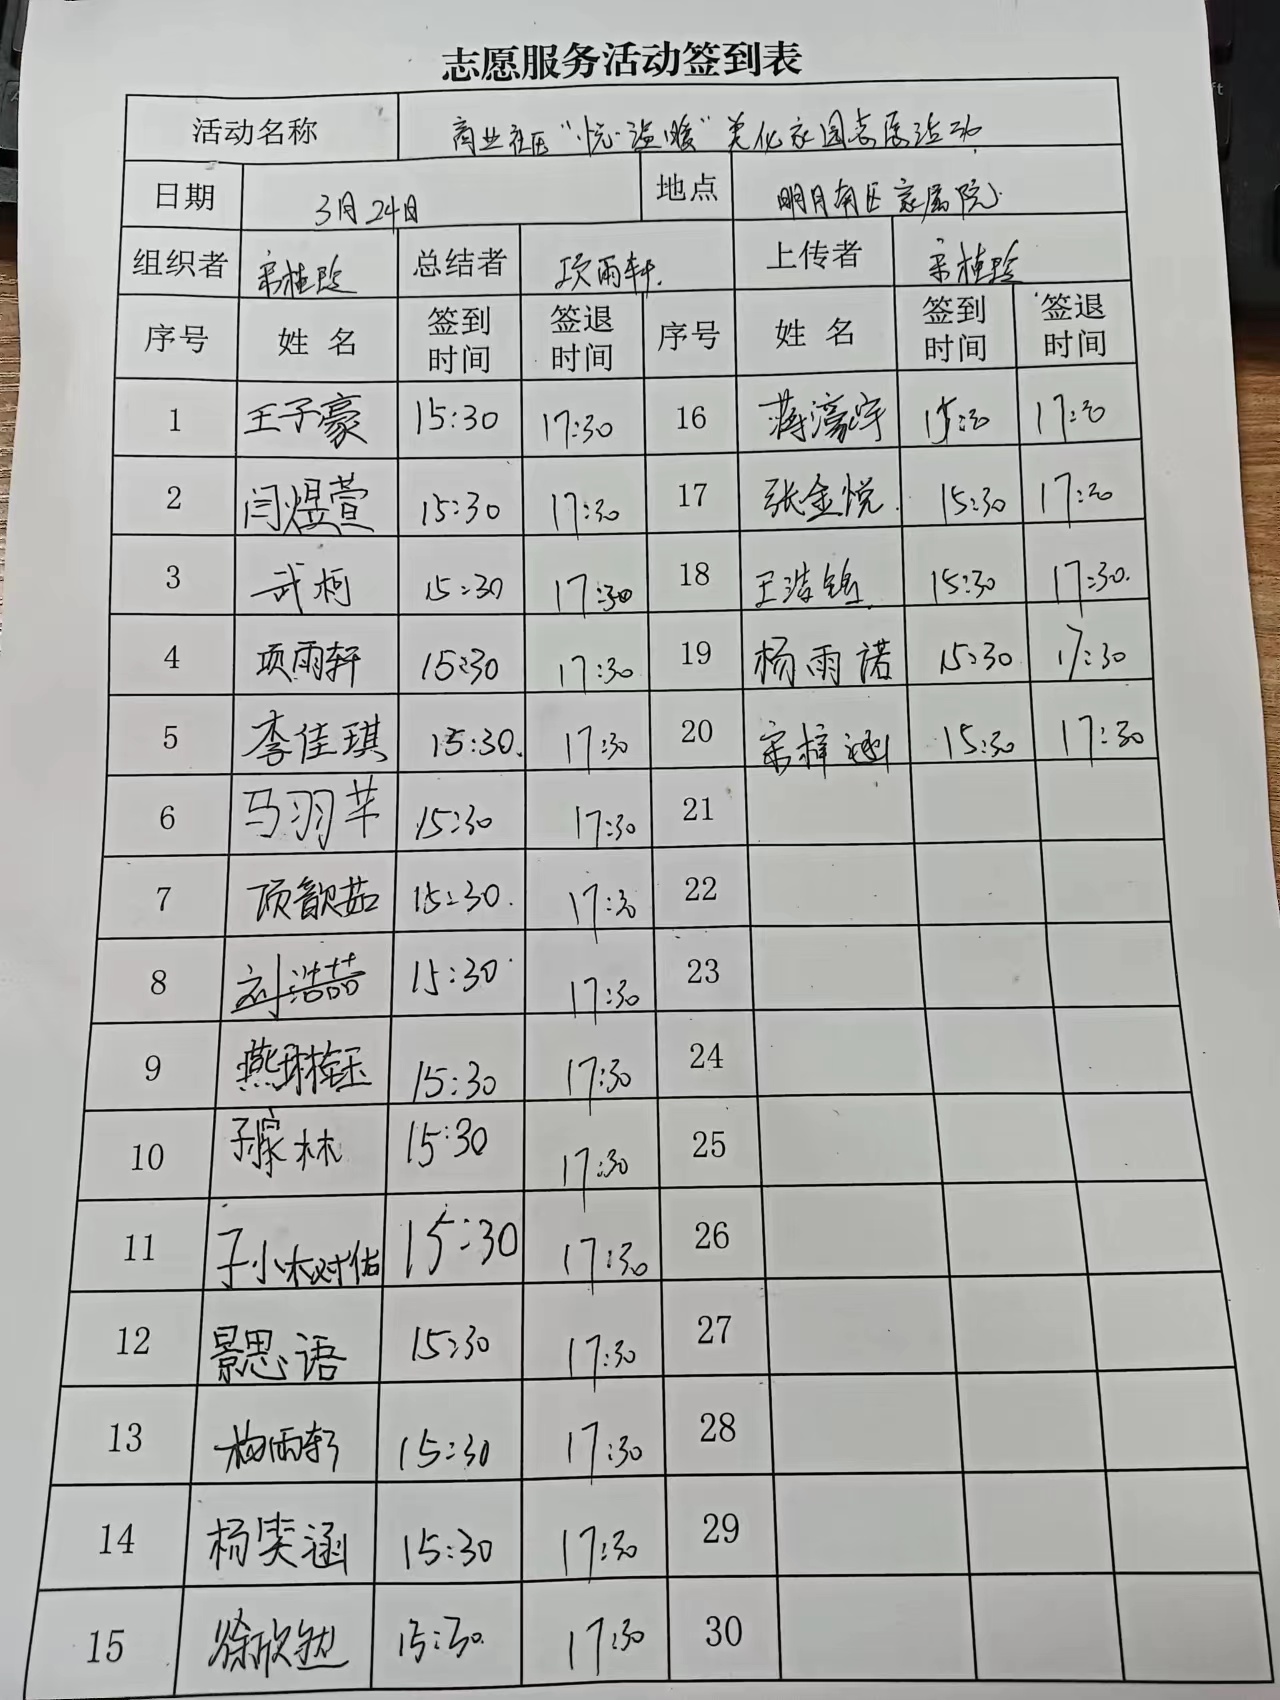 志愿服务活动签到表
活动名称 商业社区“悦·温暖”美化家园志愿活动
日期 3月24日 地点 明月南区家属院
组织者 宋桂玲 总结者 项雨轩 上传者 宋桂玲
序号 姓名 签到时间 签退时间 序号 姓名 签到时间 签退时间
1 王子豪 15:30 17:30 16 蒋濠宇 15:30 17:30
2 闫煜萱 15:30 17:30 17 张金悦 15:30 17:30
3 武柯 15:30 17:30 18 王浩 15:30 17:30
4 项雨轩 15:30 17:30 19 杨雨诺 15:30 17:30
5 李佳琪 15:30 17:30 20 宋梓涵 15:30 17:30
6 马羽芊 15:30 17:30 21
7 项歆茹 15:30 17:30 22
8 刘浩喆 15:30 17:30 23
9 燕 15:30 17:30 24
10 林 15:30 17:30 25
11 15:30 17:30 26
12 景思语 15:30 17:30 27
13 梅雨轩 15:30 17:30 28
14 杨奕涵 15:30 17:30 29
15 徐欣 15:30 17:30 30